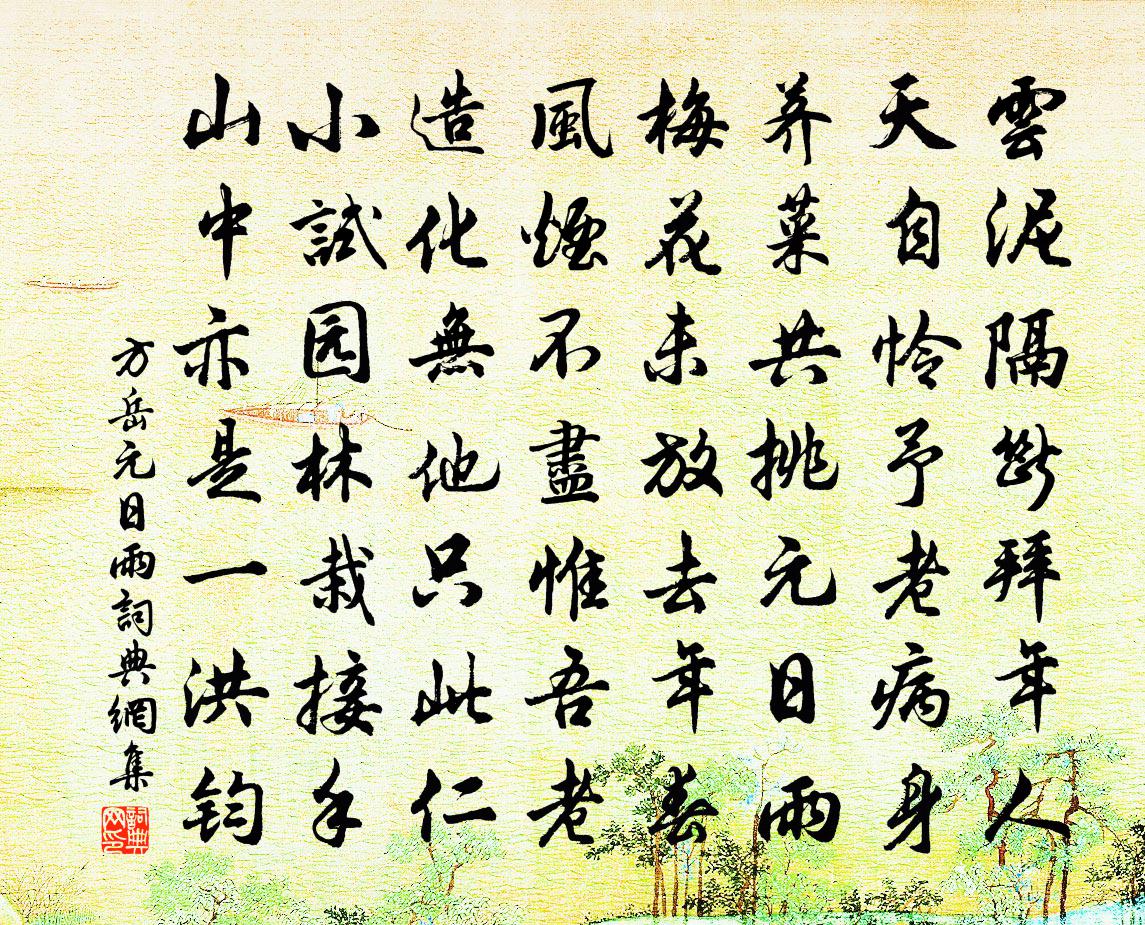 雲泥隔斷拜年人
天自怜予老病身
荠菜共挑元日雨
梅花未放去年春
風煙不盡惟吾老
造化無他只此仁
小試园林栽接手
山中亦是一洪钧
方岳元日雨詞典網集
詞典
网印